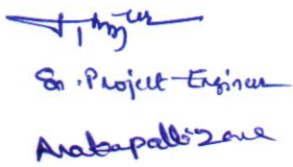 Sr. Project Engineer
Anakapalli Zone